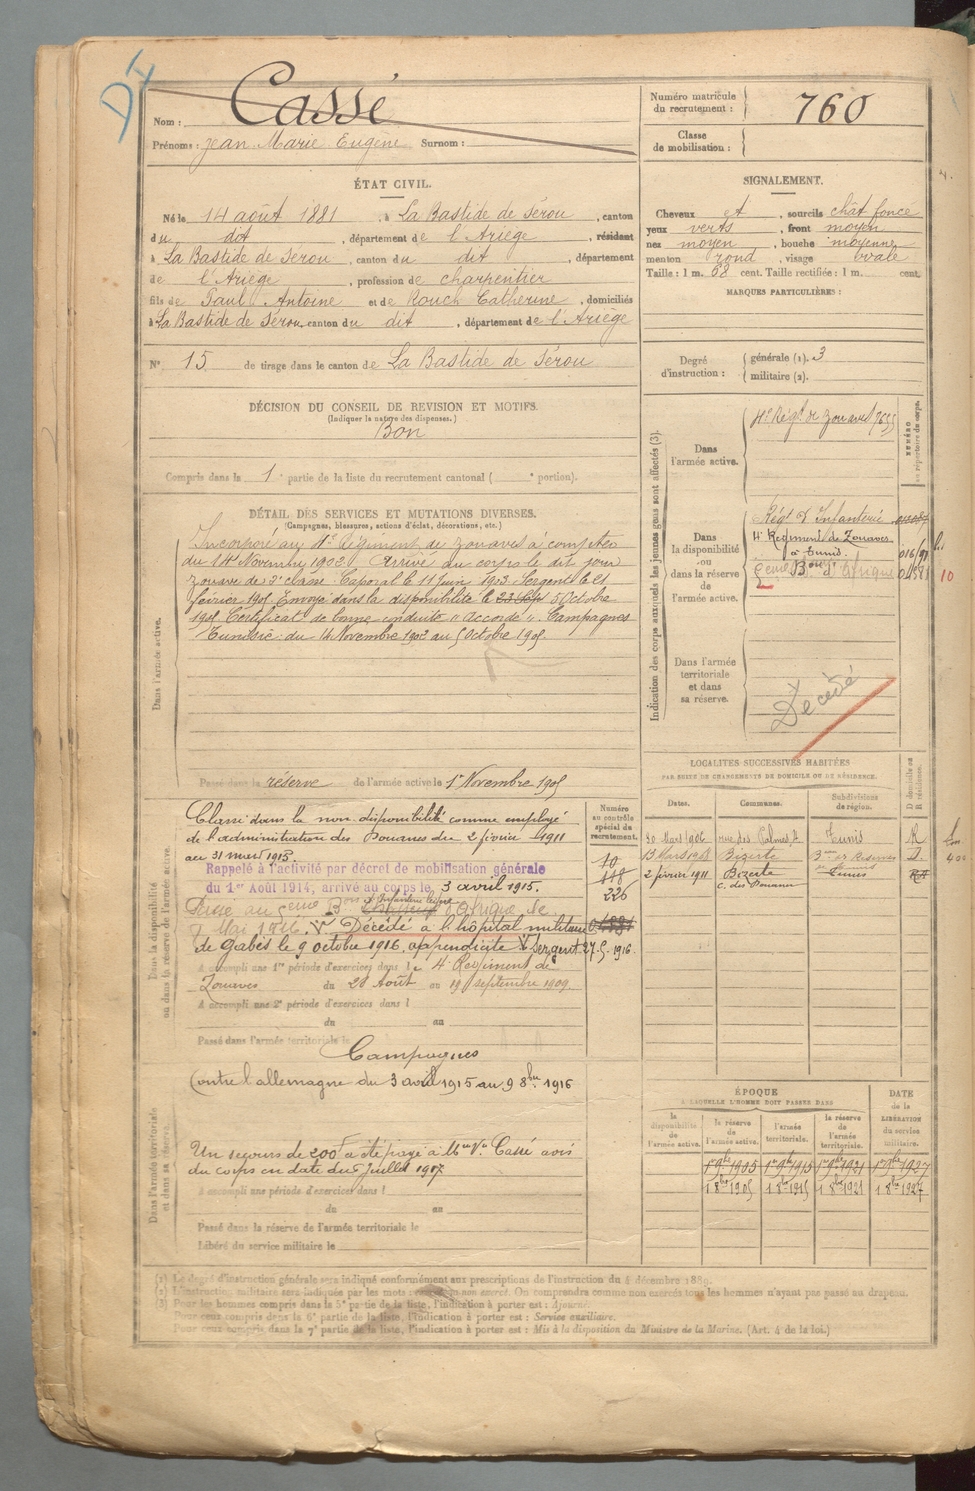 DI
Nom : Cassé
Prénoms : Jean Marie Eugène Surnom :
Numéro matricule du recrutement : 760
Classe de mobilisation :
ÉTAT CIVIL.
Né le 14 août 1881, à La Bastide de Sérou, canton
du dit, département de l'Ariège, résidant
à La Bastide de Sérou, canton du dit, département
de l'Ariège, profession de charpentier
fils de Paul Antoine et de Rouch Catherine, domiciliés
à La Bastide de Sérou, canton du dit, département de l'Ariège
N° 15 de tirage dans le canton de La Bastide de Sérou
SIGNALEMENT.
Cheveux et, sourcils chât foncé
yeux verts, front moyen
nez moyen, bouche moyenne
menton rond, visage ovale
Taille : 1 m. 68 cent. Taille rectifiée : 1 m. cent.
MARQUES PARTICULIÈRES :
Degré d'instruction : générale (1). 3
militaire (2).
DÉCISION DU CONSEIL DE REVISION ET MOTIFS.
(Indiquer la nature des dispenses.)
Bon
Compris dans la 1e partie de la liste du recrutement cantonal ( e portion).
DÉTAIL DES SERVICES ET MUTATIONS DIVERSES.
(Campagnes, blessures, actions d'éclat, décorations, etc.)
Dans l'armée active.
Incorporé au 4e Régiment de zouaves à compter
du 14 Novembre 1902. Arrivé au corps le dit jour
zouave de 2e classe. Caporal le 11 juin 1903 Sergent le 21
février 1905. Envoyé dans la disponibilité le 23 Sep 5 Octobre
1905 Certificat de bonne conduite "Accordé". Campagnes
Tunisie : du 14 Novembre 1902 au 5 Octobre 1905.
Passé dans la réserve de l'armée active le 1er Novembre 1905
Indication des corps auxquels les jeunes gens sont affectés (3).
NUMÉRO au répertoire du corps.
Dans l'armée active.
4e Régt de zouaves 7655
Dans la disponibilité ou dans la réserve de l'armée active.
Régt d'Infanterie
4e Régiment de Zouaves
à Tunis.
5ème Bon d'Afrique
10
Dans l'armée territoriale et dans sa réserve.
Décédé
LOCALITÉS SUCCESSIVES HABITÉES
PAR SUITE DE CHANGEMENTS DE DOMICILE OU DE RÉSIDENCE.
Dates. Communes. Subdivisions de région. D domicile ou R résidence.
30 Mars 1906 rue des Palmes, Tunis R
13 Mars 1908 Bizerte D.
2 février 1911 Bizerte Tunis
c. des Douanes
Dans la disponibilité ou dans la réserve de l'armée active.
Numéro au contrôle spécial du recrutement.
Classé dans la non disponibilité comme employé
de l'administration des Douanes du 2 février 1911
au 31 mars 1915.
Rappelé à l'activité par décret de mobilisation générale
du 1er Août 1914, arrivé au corps le 3 avril 1915.
Passé au 5ème Bon d'Infanterie légère d'Afrique le
7 Mai 1916. Décédé à l'hôpital militaire
de Gabès le 9 octobre 1916. appendicite Sergent 27.5.1916.
10
118
226
A accompli une 1re période d'exercices dans le 4e Régiment de
Zouaves du 28 Août au 19 septembre 1909.
A accompli une 2e période d'exercices dans l
du au
Passé dans l'armée territoriale le
Campagnes
Contre l'allemagne du 3 avril 1915 au 9 8bre 1916
Dans l'armée territoriale et dans sa réserve.
Un secours de 200f a été payé à Mme Ve Cassé avis
du corps en date du 5 juillet 1917
A accompli une période d'exercices dans l
du au
Passé dans la réserve de l'armée territoriale le
Libéré du service militaire le
ÉPOQUE
A LAQUELLE L'HOMME DOIT PASSER DANS
DATE de la LIBÉRATION du service militaire.
la disponibilité de l'armée active. la réserve de l'armée active. l'armée territoriale. la réserve de l'armée territoriale.
1er 9bre 1905 1er 9bre 1915 1er 9bre 1921 1er 9bre 1927
1 8bre 1905 1 8bre 1915 1 8bre 1921 1 8bre 1927
(1) Le degré d'instruction générale sera indiqué conformément aux prescriptions de l'instruction du 4 décembre 1889.
(2) L'instruction militaire sera indiquée par les mots exercé ou non exercé. On comprendra comme non exercés tous les hommes n'ayant pas passé au drapeau.
(3) Pour les hommes compris dans la 5e partie de la liste, l'indication à porter est : Ajourné.
Pour ceux compris dans la 6e partie de la liste, l'indication à porter est : Service auxiliaire.
Pour ceux compris dans la 7e partie de la liste, l'indication à porter est : Mis à la disposition du Ministre de la Marine. (Art. 4 de la loi.)